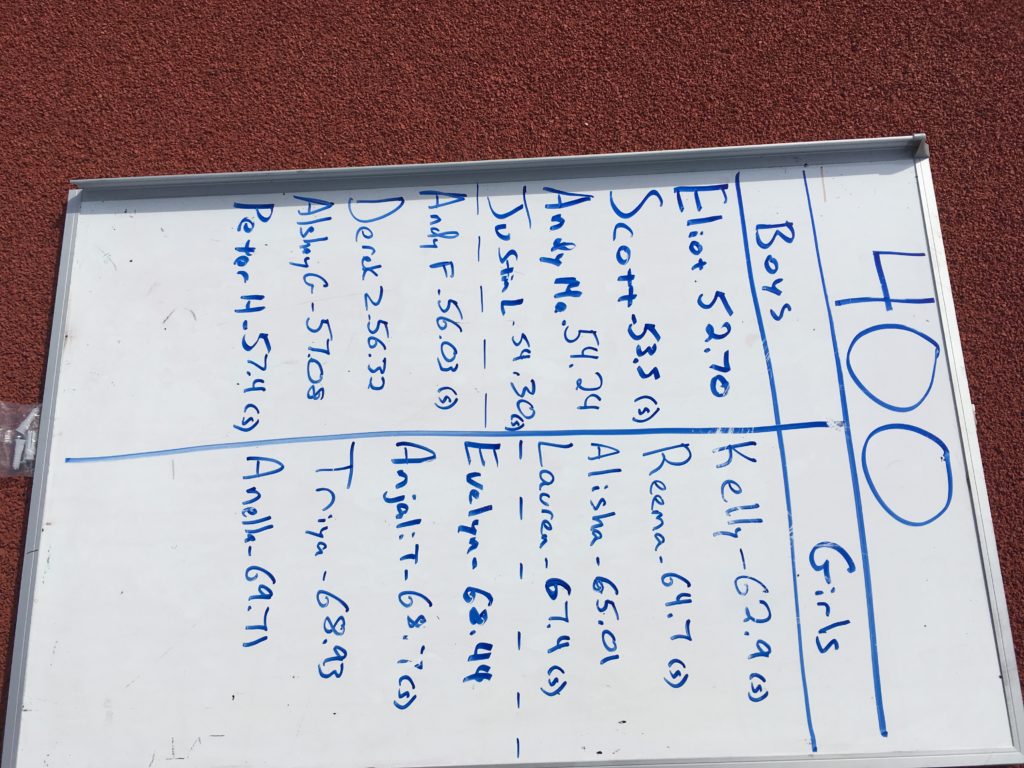 400
Boys Girls
Eliot. 52.70 Kelly - 62.9 (s)
Scott - 53.5 (s) Reema - 64.7 (s)
Andy Ma. 54.24 Alisha - 65.01
Justin L. 54.30(s) Lauren - 67.4 (s)
Andy F. 56.03 (s) Evelyn - 68.44
Derek Z. 56.32 Anjali T - 68.7 (s)
57.08 Triya - 68.93
Peter H - 57.4 (s) - 69.71